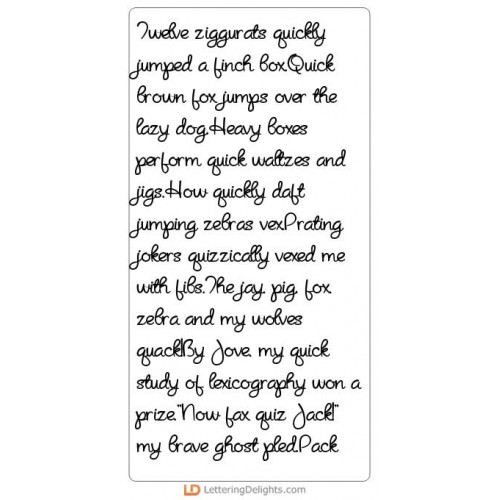 Twelve ziggurats quickly
jumped a finch box.Quick
brown fox jumps over the
lazy dog.Heavy boxes
perform quick waltzes and
jigs.How quickly daft
jumping zebras vex.Prating
jokers quizzically vexed me
with fibs.The jay, pig, fox,
zebra and my wolves
quack!By Jove, my quick
study of lexicography won a
prize."Now fax quiz Jack!"
my brave ghost pled.Pack
LD LetteringDelights.com